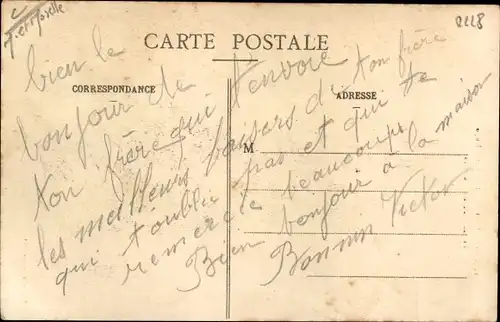 M.et Moselle
2118
CARTE POSTALE
CORRESPONDANCE
ADRESSE
M
bien le
bonjour de
ton frère qui t'envoie
les meilleurs baisers de ton frère
qui t'oublie pas et qui te
remercie beaucoup
Bien bonjour à la maison
Victor